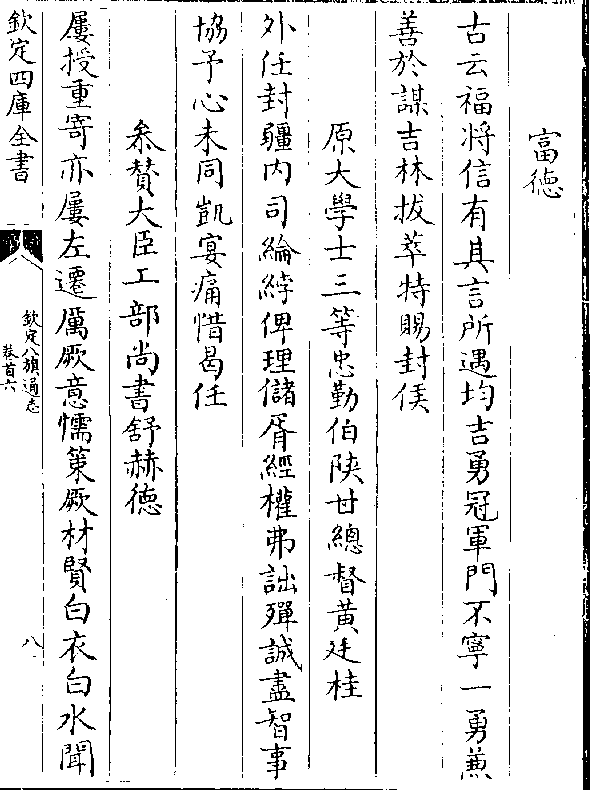 富徳
古云福将信有其言所遇均吉勇冠軍門不寧一勇兼
善於謀吉林拔萃特賜封侯
原大學士三等忠勤伯陜甘總督黄廷桂
外任封疆内司綸綍俾理儲胥經權弗詘殫誠盡智事
協予心未同凱宴痛惜曷任
叅賛大臣工部尚書舒赫徳
屢授重寄亦屢左遷厲厥意懦策厥材賢白衣白水聞
欽定四庫全書
欽定八旗通志
卷首六
八